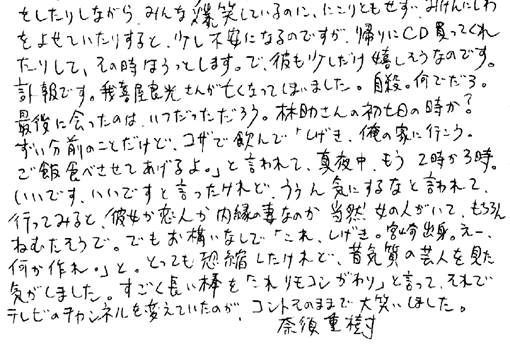 をしたりしながら、みんな爆笑しているのに、にこりともせず、みけんにしわ
をよせていたりすると、少し不安になるのですが、帰りにCD買ってくれ
たりして、その時はうっとします。で、彼も少しだけ嬉しそうなのです。
訃報です。我喜屋良光さんが亡くなってしまいました。自殺。何でだろ。
最後に会ったのは、いつだっただろう。林助さんの初七日の時か?
ずい分前のことだけど、コザで飲んで「しげき、俺の家に行こう。
ご飯食べさせてあげるよ。」と言われて、真夜中、もう2時か3時。
いいです、いいですと言ったけれど、ううん気にするなと言われて、
行ってみると、彼女か恋人か内縁の妻なのか 当然 女の人がいて、もちろん
ねむたそうで。でもお構いなしで「これ、しげき。宮崎出身。えー、
何か作れ。」と。とっても恐縮したけれど、昔気質の芸人を見た
気がしました。すごく長い棒を「これリモコンがわり」と言って、それで
テレビのチャンネルを変えていたのが、コントそのままで大笑いしました。
奈須重樹